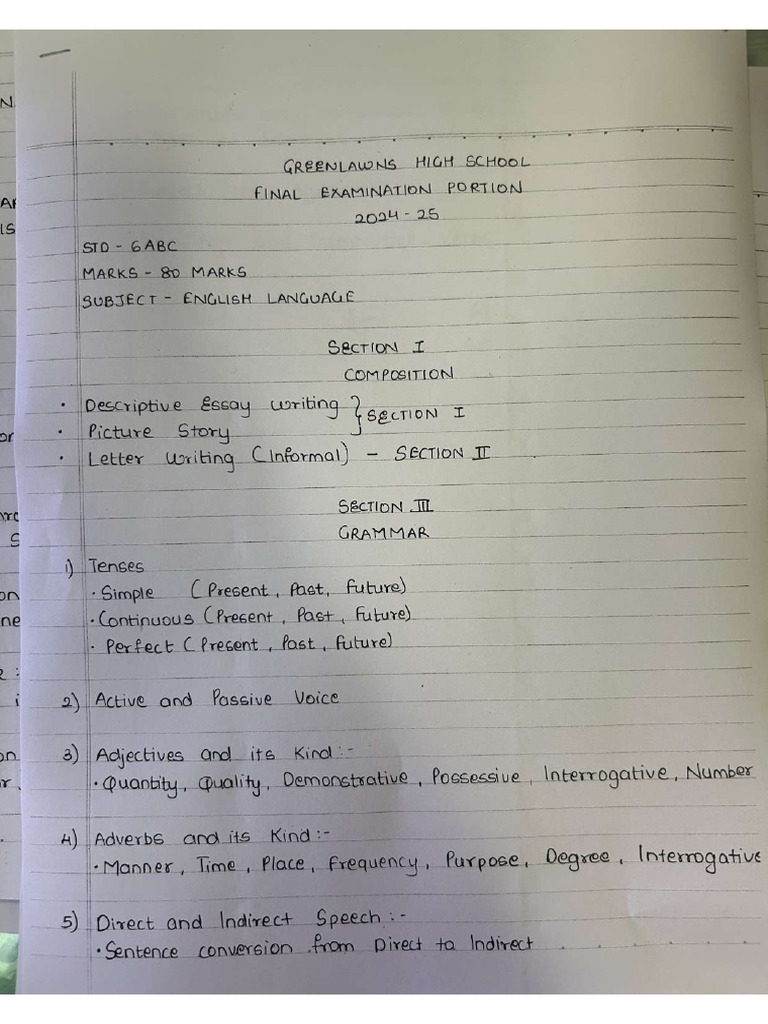 GREENLAWNS HIGH SCHOOL
FINAL EXAMINATION PORTION
2024-25
STD - 6ABC
MARKS - 80 MARKS
SUBJECT - ENGLISH LANGUAGE
SECTION I
COMPOSITION
• Descriptive Essay Writing } SECTION I
• Picture Story
• Letter Writing (Informal) - SECTION II
SECTION III
GRAMMAR
1) Tenses
• Simple (Present, Past, Future)
• Continuous (Present, Past, Future)
• Perfect (Present, Past, Future)
2) Active and Passive Voice
3) Adjectives and its Kind :-
• Quantity, Quality, Demonstrative, Possessive, Interrogative, Number
4) Adverbs and its Kind :-
• Manner, Time, Place, Frequency, Purpose, Degree, Interrogative
5) Direct and Indirect Speech :-
• Sentence conversion from Direct to Indirect